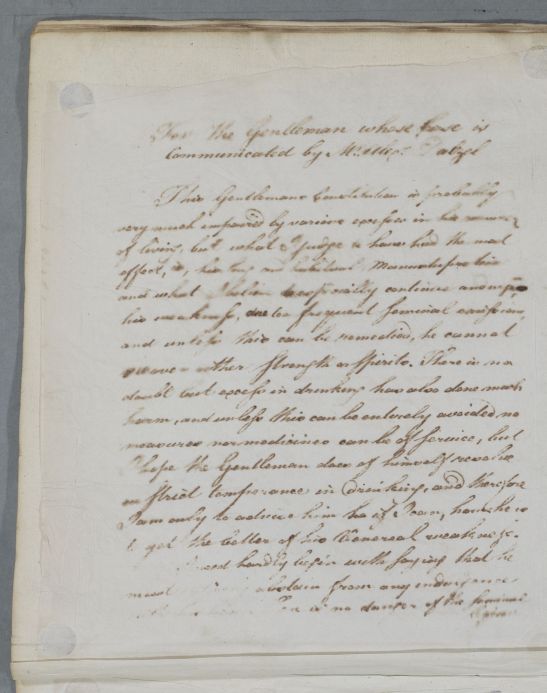 For the Gentleman whose Case is
Communicated by Mr. Alexr. Dalzel
This Gentlemans Constitution is probably
very much impaired by various excesses in his manner
of living, but what I judge to have had the most
effect, is, his long and habitual Manustupration
and what I believe especially continues and
his weakness, are too frequent seminal emissions,
and unless this can be remedied, he cannot
recover either Strength or Spirits. There is no
doubt but excess in drinking has also done much
harm, and unless this can be entirely avoided no
measures nor medicines can be of service, but
I hope the Gentleman does of himself resolve
on Strict temperance in drinking, and therefore
I am only to advise him how he is
to get the better of his Venereal weakness.
I need hardly begin with saying that he
must abstain from any indulgence
is no danger of the seminal